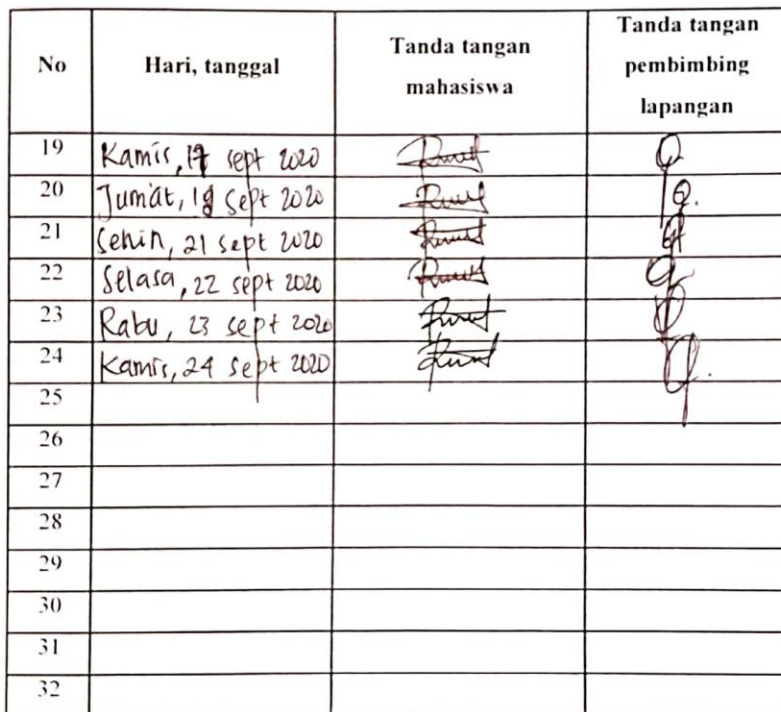 No Hari, tanggal Tanda tangan mahasiswa Tanda tangan pembimbing lapangan
19 Kamis, 17 sept 2020
20 Jumat, 18 sept 2020
21 Senin, 21 sept 2020
22 Selasa, 22 sept 2020
23 Rabu, 23 sept 2020
24 Kamis, 24 sept 2020
25
26
27
28
29
30
31
32